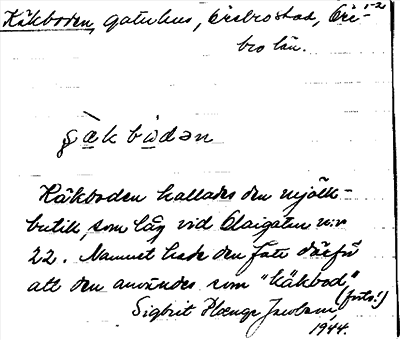 Käkboden, gatuhus, Örebro stad, Öre-
bro län.
Käkboden kallades den mjölk-
butik, som låg vid Olaigatan n:r
22. Namnet hade den fått därför
att den användes som "käkbod"
(forts.)
Sigbrit Plænge Jacobson,
1944.